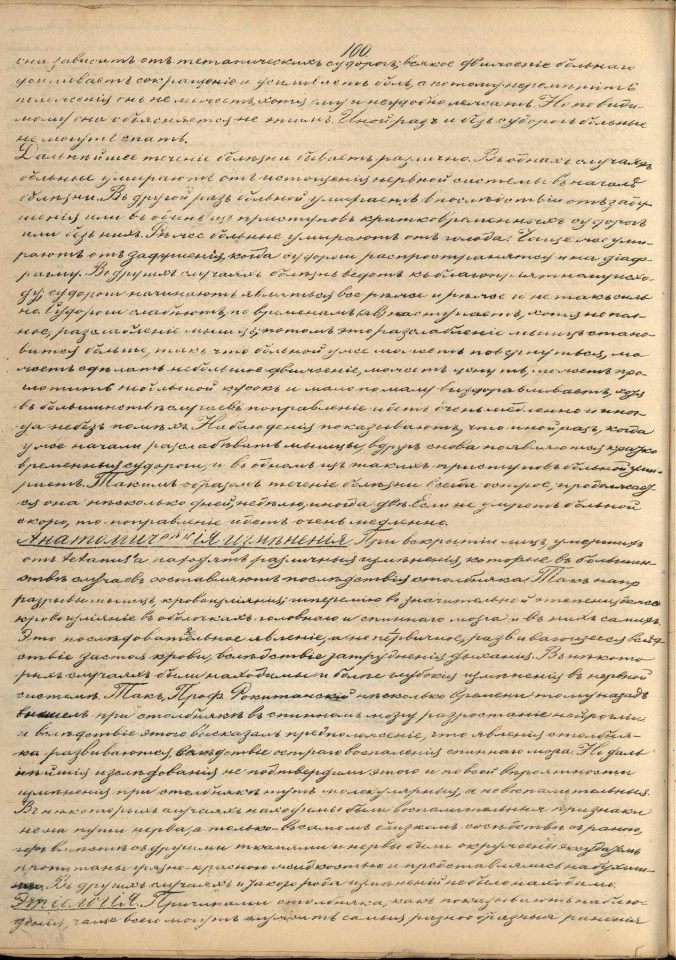 100.
она зависитъ отъ тетаническихъ судорогъ; всякое движеніе больнаго
усиливаетъ сокращеніе и усиливаетъ боль, а потому перемѣнить
положенія онъ не можетъ, хотя ему и неудобно лежать. Но по види-
мому она объясняется не этимъ. Иной разъ и безъ судорогъ больные
не могутъ спать.
Дальнѣйшее теченіе болѣзни бываетъ различно. Въ однихъ случаяхъ
больные умираютъ отъ истощенія нервной системы въ началѣ
болѣзни. Въ другой разъ больной умираетъ въ послѣдствіи отъ заду-
шенія или въ одинъ изъ приступовъ кратковременныхъ судорогъ
или безъ нихъ. Рѣже больные умираютъ отъ голода. Чаще же уми-
раютъ отъ задушенія, когда судороги распространятся и на діаф-
рагму. Въ другихъ случаяхъ болѣзнь ведетъ къ благопріятному исхо-
ду; судороги начинаютъ являться все рѣже и рѣже и не такъ силь
но. Судороги слабѣютъ, по временамъ наступаетъ, хотя не пол-
ное, разслабленіе мышцъ; потомъ это разслабленіе мышцъ стано-
вится больше, такъ что больной уже можетъ повернуться, мо-
жетъ сдѣлать небольшое движеніе, можетъ уснуть, можетъ про-
глотить небольшой кусокъ и мало по малу выздоравливаетъ, хотя
въ большинствѣ случаевъ поправленіе идетъ очень медленно и иног
да не безъ помѣхъ. Наблюденія показываютъ, что иной разъ, когда
уже начали разслабѣвать мышцы, вдругъ снова появляются кратко
временныя судороги, и въ одномъ изъ такихъ приступовъ больной уми-
раетъ. Такимъ образомъ теченіе болѣзни всегда острое, продолжает-
ся она нѣсколько дней, недѣлю, иногда двѣ. Если не умретъ больной
скоро, то поправленіе идетъ очень медленно.
Анатомическія измѣненія. При вскрытіи лицъ, умершихъ
отъ tetanus'а находятъ различныя измѣненія, которыя въ большин-
ствѣ случаевъ составляютъ послѣдствія столбняка. Такъ напр
разрывы мышцъ, кровоизліянія; гиперемію въ значительной степени, также
кровоизліяніе въ оболочкахъ головнаго и спиннаго мозга и въ нихъ самихъ.
Это послѣдовательное явленіе, а не первичное, развивающееся вслѣд-
ствіе застоя крови, вслѣдствіе затрудненія дыханія. Въ нѣкото
рыхъ случаяхъ были находимы и болѣе глубокія измѣненія въ нервной
системѣ. Такъ, Проф. Рокитанскій нѣсколько времени тому назадъ
нашелъ при столбнякѣ въ спинномъ мозгу разростаніе нейрогліи
и вслѣдствіе этого высказалъ предположеніе, что явленія столбня-
ка развиваются вслѣдствіе остраго воспаленія спиннаго мозга. Но даль
нѣйшія изслѣдованія не подтвердили этого и по всей вѣроятности
измѣненія при столбнякѣ тутъ молекулярныя, а не воспалительныя.
Въ нѣкоторыхъ случаяхъ находимы были воспалительные признаки
не на пути нерва, а только въ самомъ близкомъ сосѣдствѣ съ раною,
гдѣ вмѣстѣ съ другими тканями и нервы были окружены экссудатомъ
пропитаны грязно-красною жидкостью и представлялись набухши-
ми. Въ другихъ случаяхъ и такого рода измѣненій не было находимо.
Этіологія. Причинами столбняка, какъ показываютъ наблю-
денія, чаще всего могутъ служить самыя разнообразныя раненія